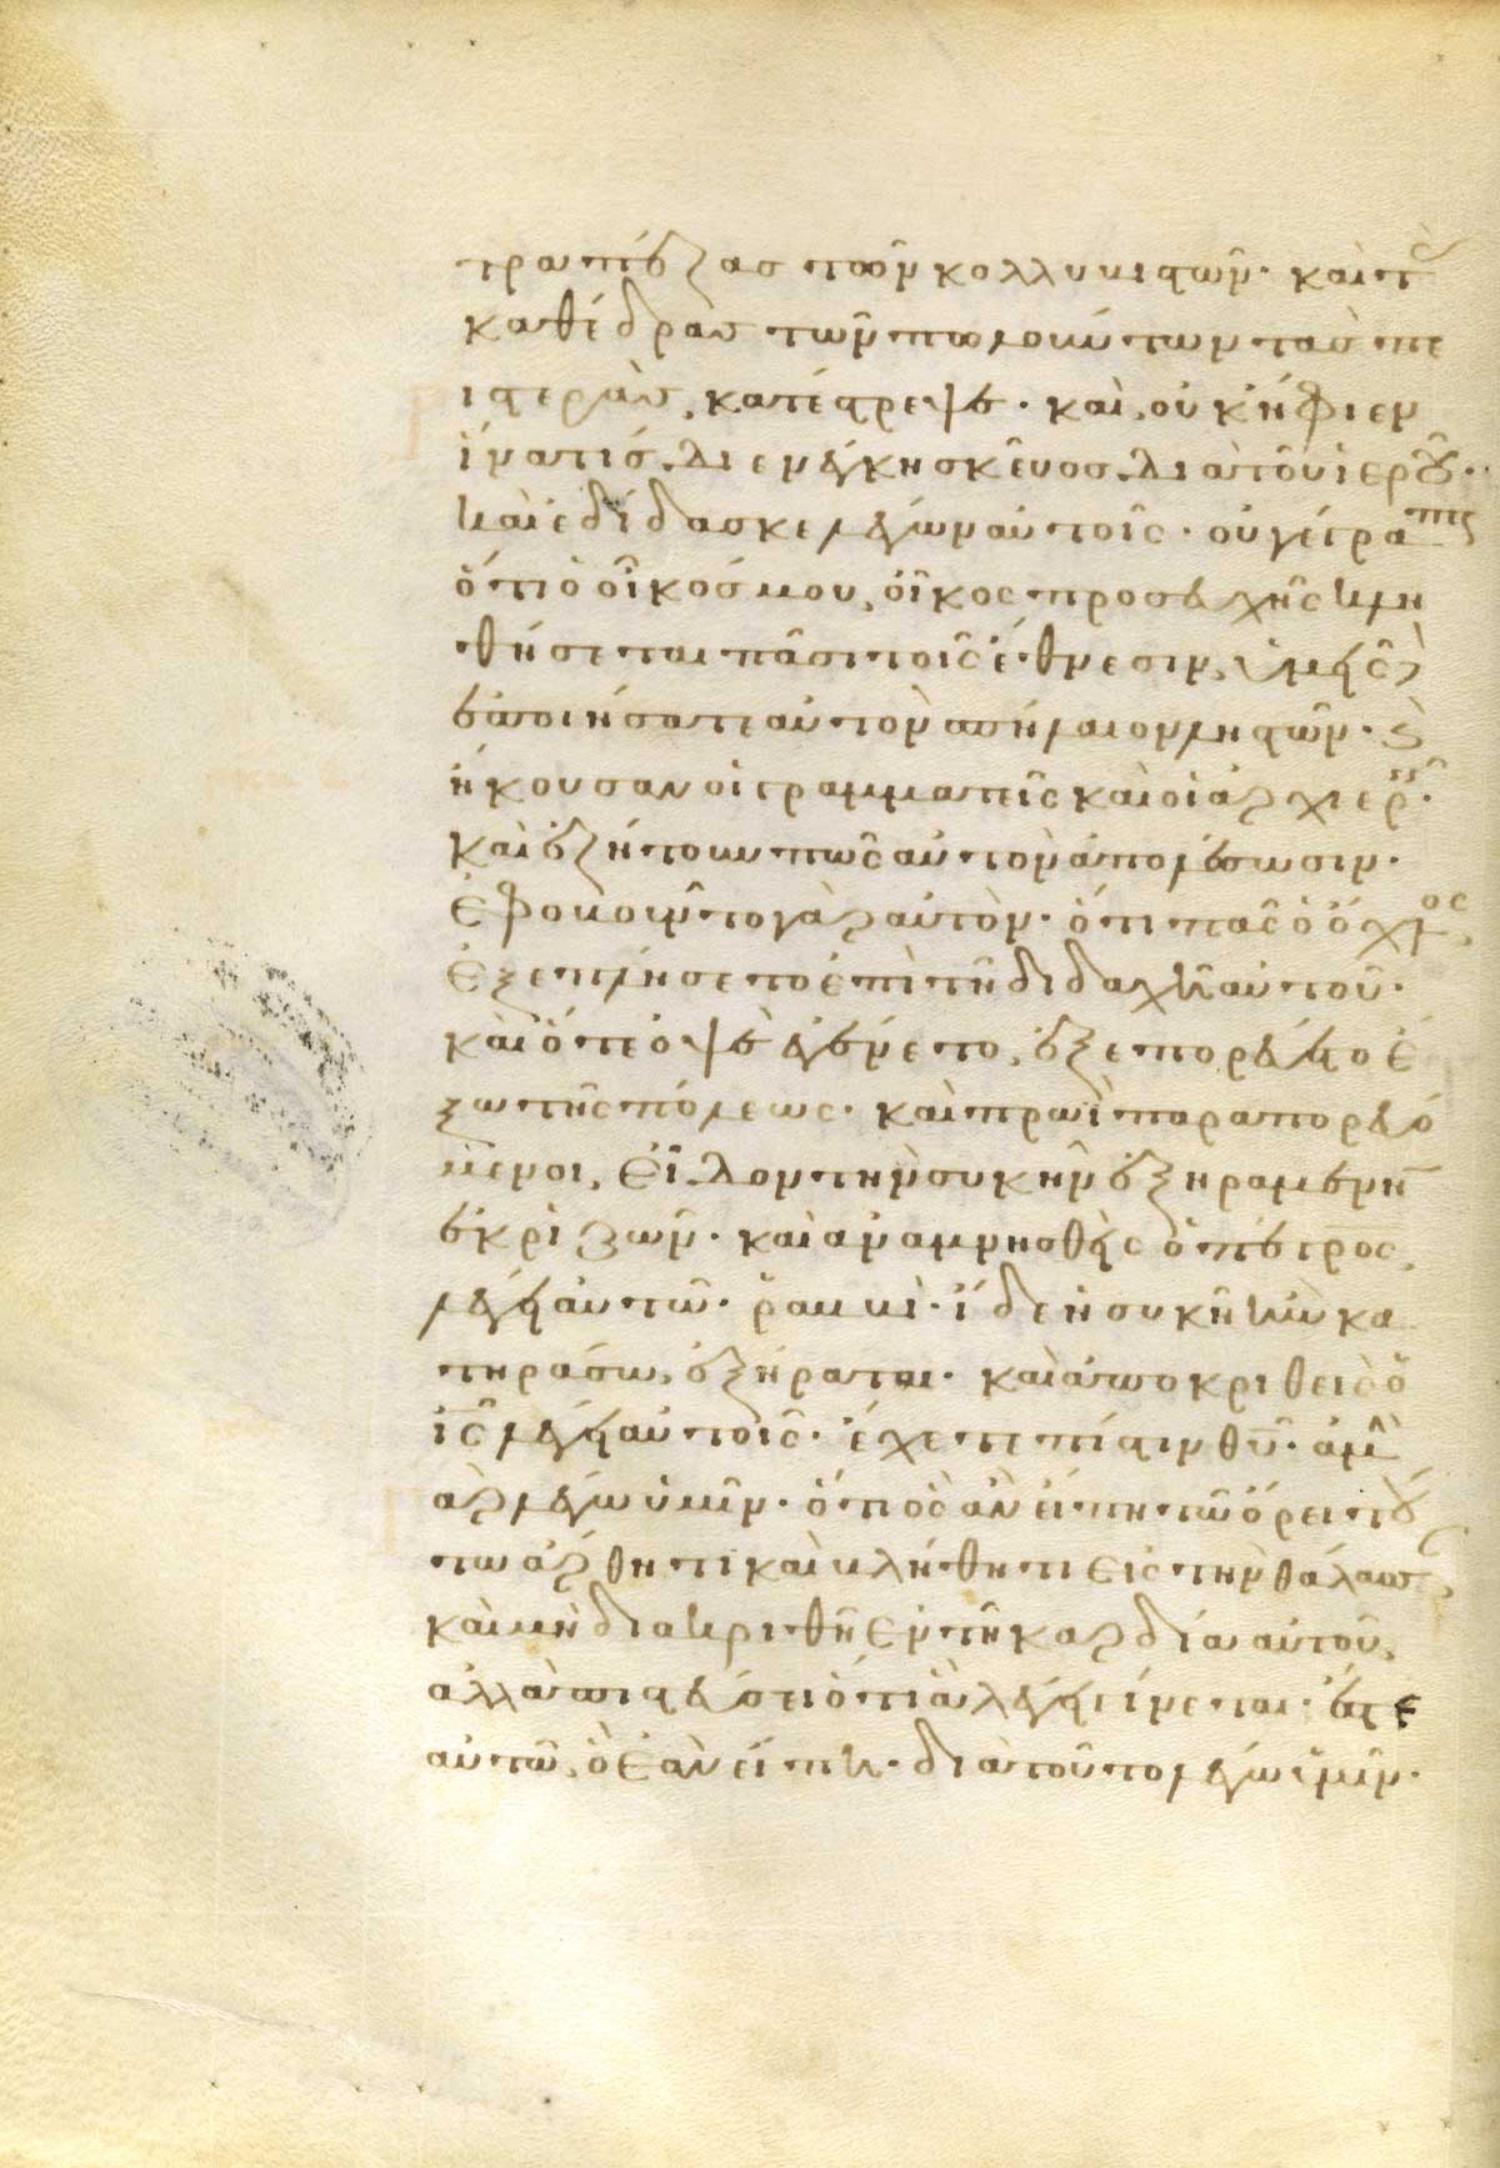 τραπέζας τῶν κολλυβιστῶν· καὶ τ(ὰς)
καθέδρας τῶν πωλούντων τὰς πε
ριστερὰς, κατέστρεψε· καὶ, οὐκ ἤφιεν
ἵνα τὶς διενέγκη σκεῦος διὰ τοῦ ἱεροῦ··
καὶ ἐδίδασκε λέγων αὐτοῖς· οὐ γέγραπται
ὅτι ὁ οἶκός μου, οἶκος προσευχῆς κλη
θήσεται πᾶσι τοῖς ἔθνεσιν, ὑμεῖς δὲ
ἐποιήσατε αὐτὸν σπήλαιον ληστῶν· καὶ
ἤκουσαν οἱ γραμματεῖς καὶ οἱ ἀρχιερεῖς·
καὶ ἐζήτουν πῶς αὐτὸν ἀπολέσωσιν·
ἐφοβοῦντο γὰρ αὐτὸν· ὅτι πᾶς ὁ ὄχλος,
ἐξεπλήσετο ἐπὶ τῆ διδαχῆ αὐτοῦ·
καὶ ὅτε ὀψὲ ἐγένετο, ἐξεπορεύετο ἔ
ξω τῆς πόλεως· καὶ πρωῒ παραπορευό
μενοι, εἶδον τὴν συκῆν ἐξηραμένην
ἐκ ριζῶν· καὶ ἀναμνησθεὶς ὁ πέτρος,
λέγει αὐτῶ· ῥαββὶ· ἴδε ἡ συκῆ ἣν κα
τηράσω, ἐξήραται· καὶ ἀποκριθεὶς ὁ
ἰς λέγει αὐτοῖς· ἔχετε πίστιν θυ· ἀμὴν
γὰρ λέγω ὑμῖν· ὅτι ὃς ἂν εἴπη τῶ ὄρει τού
τω ἄρθητι καὶ βλήθητι εἰς τὴν θάλασσ(αν),
καὶ μὴ διακριθῆ ἐν τῆ καρδία αὐτοῦ,
ἀλλὰ πιστεύσει ὅτι ἃ λέγει γίνεται· ἔσται
αὐτῶ, ὃ ἐὰν εἴπη· διὰ τοῦτο λέγω ὑμῖν·